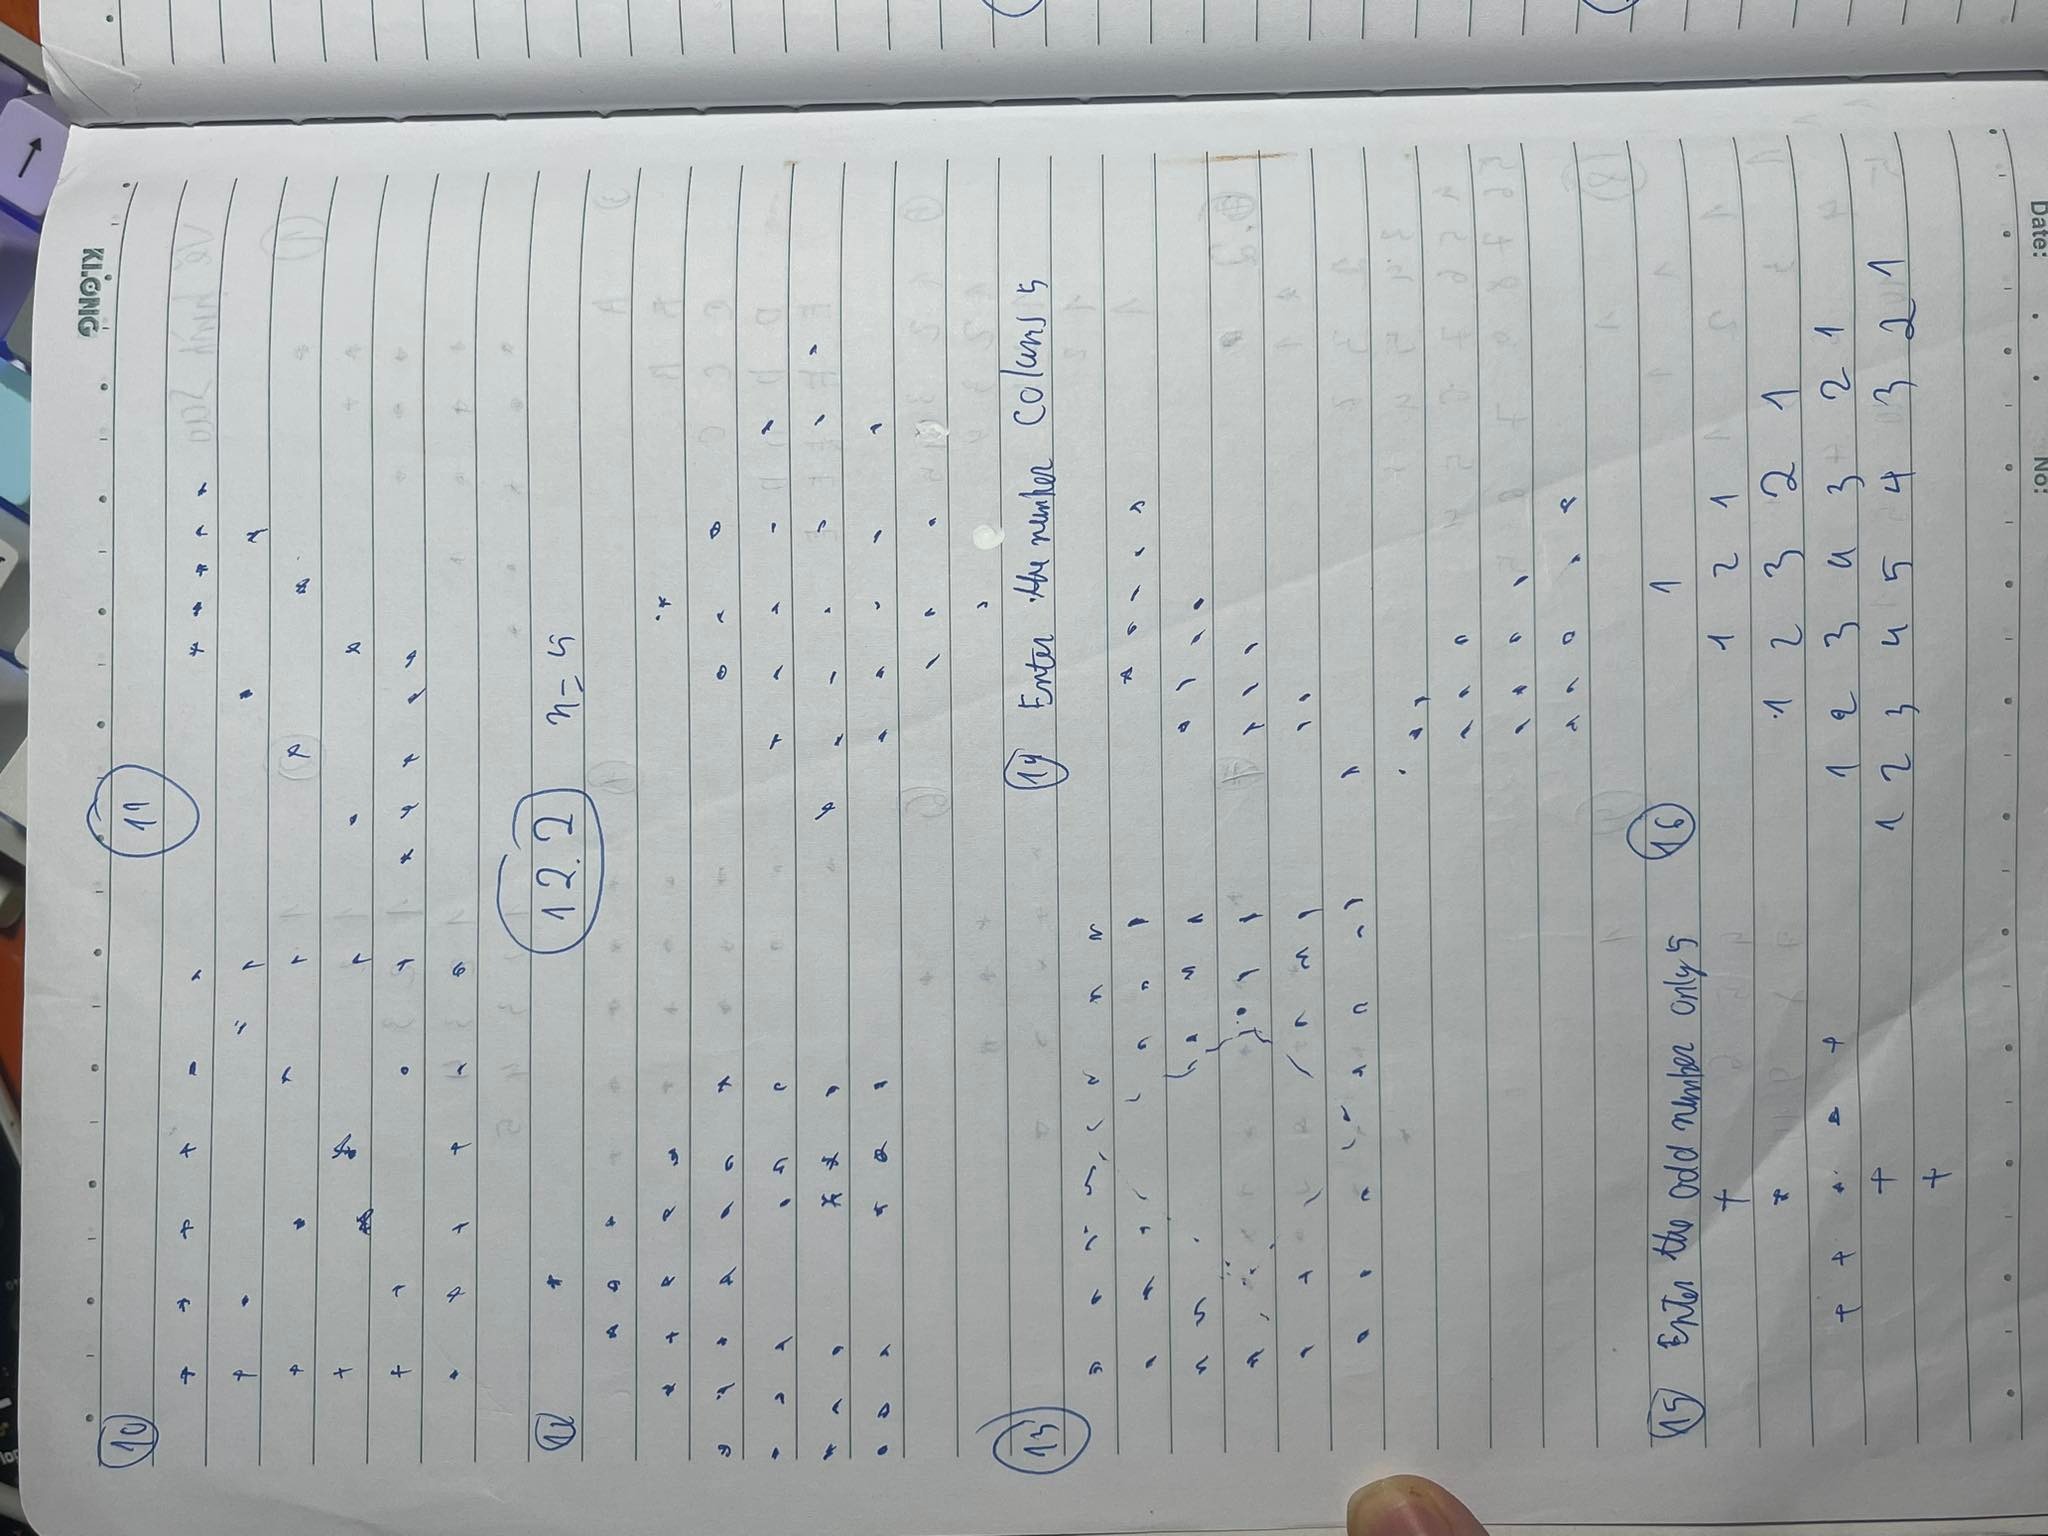 KLONG
Date:
No:
10
11
12
12.2 n=5
13
14 Enter the number Colums 5
15 Enter the odd number only 5
16
1
1 2 1
1 2 3 2 1
1 2 3 4 3 2 1
1 2 3 4 5 4 3 2 1